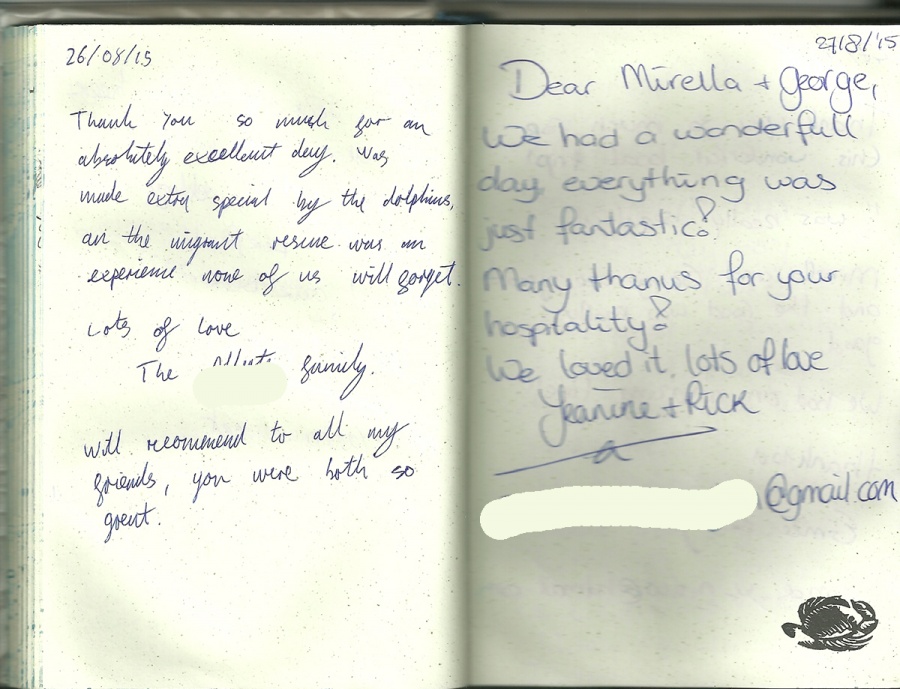 26/08/15
Thank You so much for an
absolutely excellent day. Was
made extra special by the dolphins,
an the migrant rescue was an
experience none of us will forget.
Lots of love
The family.
will recommend to all my
friends, you were both so
great.
27/8/'15
Dear Mirella + george,
We had a wonderfull
day, everything was
just fantastic!
Many thanks for your
hospitality!
We loved it, lots of love
Jeanine + Rick
@gmail.com